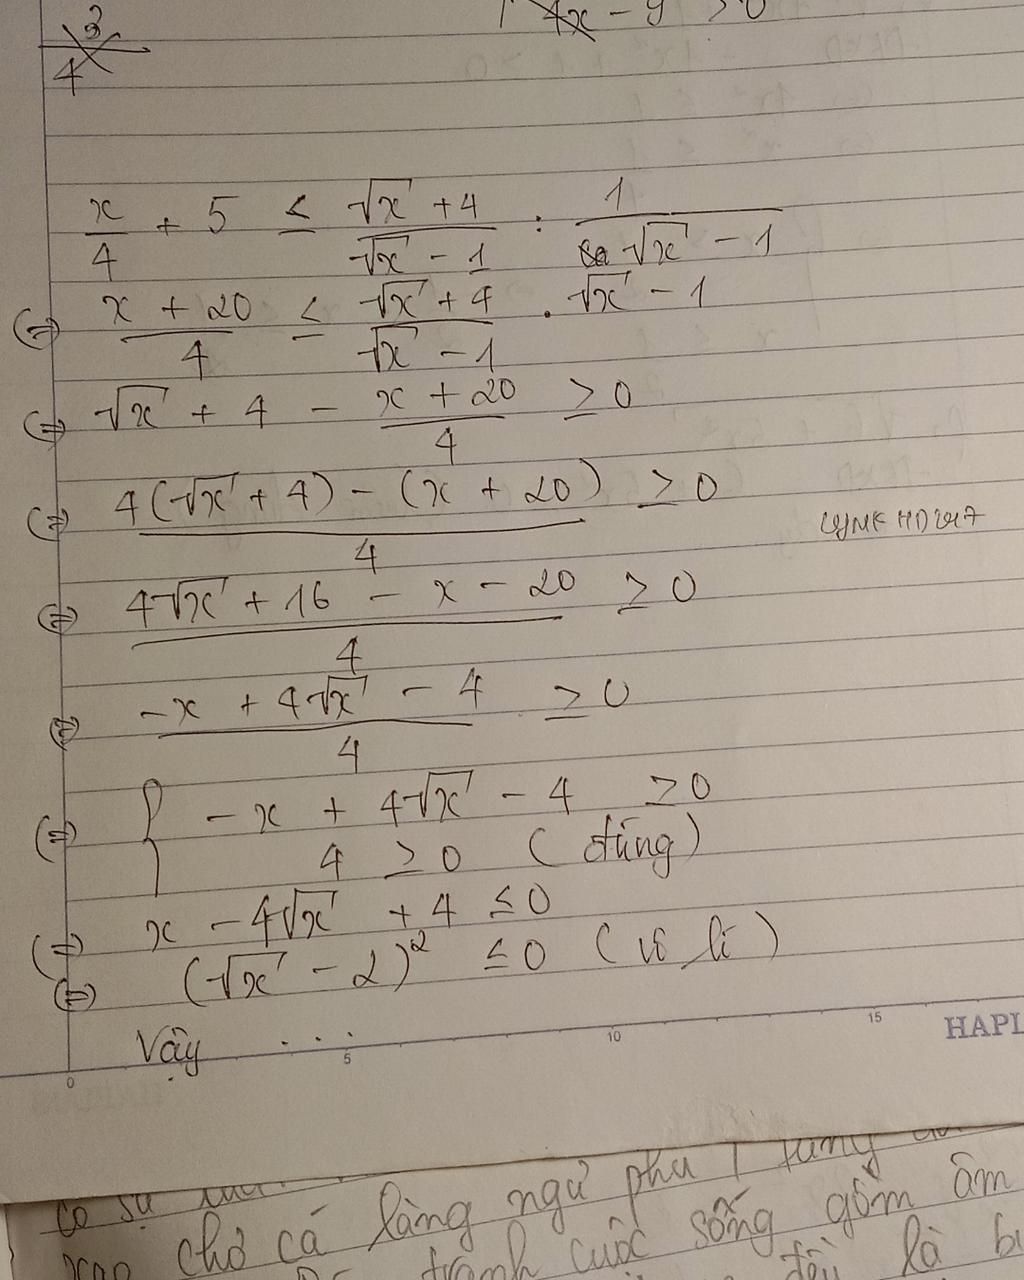 4x - y > 0
3
4
x/4 + 5 ≤ (√x + 4)/(√x - 1) : 1/(√x - 1)
(=) (x + 20)/4 ≤ (√x + 4)/(√x - 1) . √x - 1
(=) √x + 4 - (x + 20)/4 ≥ 0
(=) (4(√x + 4) - (x + 20))/4 ≥ 0
(=) (4√x + 16 - x - 20)/4 ≥ 0
(=) (-x + 4√x - 4)/4 ≥ 0
(=) { -x + 4√x - 4 ≥ 0
4 ≥ 0 (đúng)
(=) x - 4√x + 4 ≤ 0
(=) (√x - 2)² ≤ 0 (vô lí)
Vậy ...
0 5 10 15 HAPL
có sự
chờ cá làng ngư phủ
tranh cuộc sống gồm âm
đều là